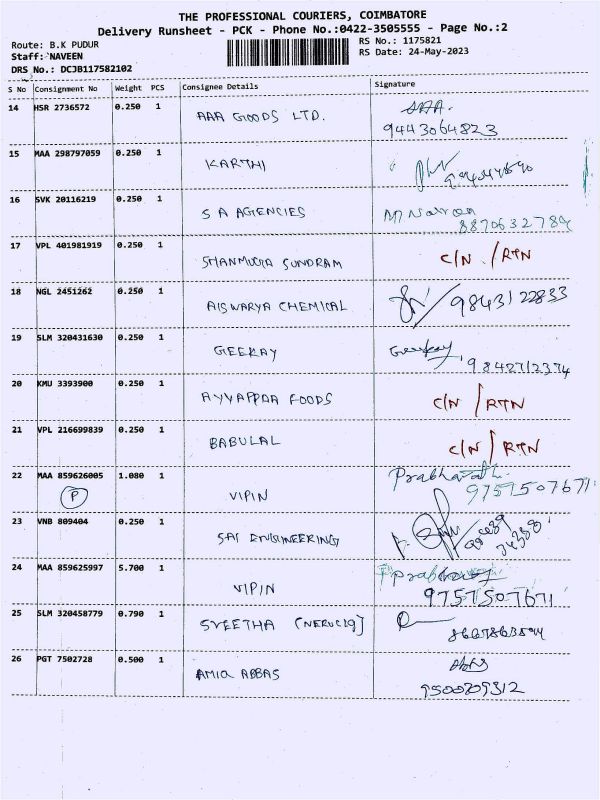 THE PROFESSIONAL COURIERS, COIMBATORE
Delivery Runsheet - PCK - Phone No.:0422-3505555 - Page No.:2
Route: B.K PUDUR RS No.: 1175821
Staff: NAVEEN RS Date: 24-May-2023
DRS No.: DCJB117582102
S No Consignment No Weight PCS Consignee Details Signature
14 HSR 2736572 0.250 1 AAA GOODS LTD.
9443064823
15 MAA 298797059 0.250 1 KARTHI
16 SVK 20116219 0.250 1 S A AGENCIES
8870632784
17 VPL 401981919 0.250 1 SHANMUGA SUNDRAM C/N / RTN
18 NGL 2451262 0.250 1 AISWARYA CHEMICAL 9843122833
19 SLM 320431630 0.250 1 GEEKAY Geekay
9842712374
20 KMU 3393900 0.250 1 AYYAPPAA FOODS C/N / RTN
21 VPL 216699839 0.250 1 BABULAL C/N / RTN
22 MAA 859626005 1.080 1 VIPIN
P 9757507671
23 VNB 809404 0.250 1 SAI ENGINEERING
24 MAA 859625997 5.700 1 VIPIN
9757507671
25 SLM 320458779 0.790 1 SVEETHA
26 PGT 7502728 0.500 1 ABBAS
9500209312